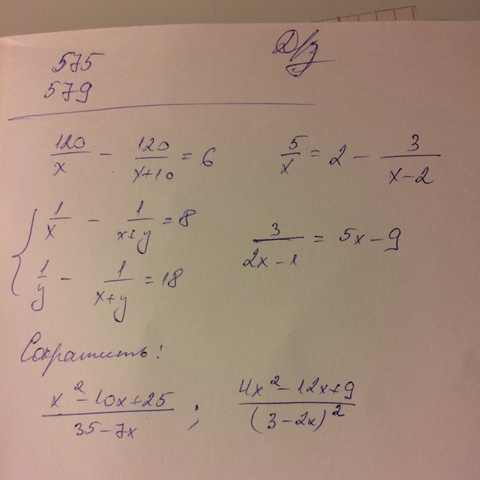 575
Д/з
579
120/x - 120/(x+10) = 6
5/x = 2 - 3/(x-2)
{ 1/x - 1/(x+y) = 8
1/y - 1/(x+y) = 18
3/(2x-1) = 5x-9
Сократить!
(x²-10x+25)/(35-7x) ; (4x²-12x+9)/(3-2x)²